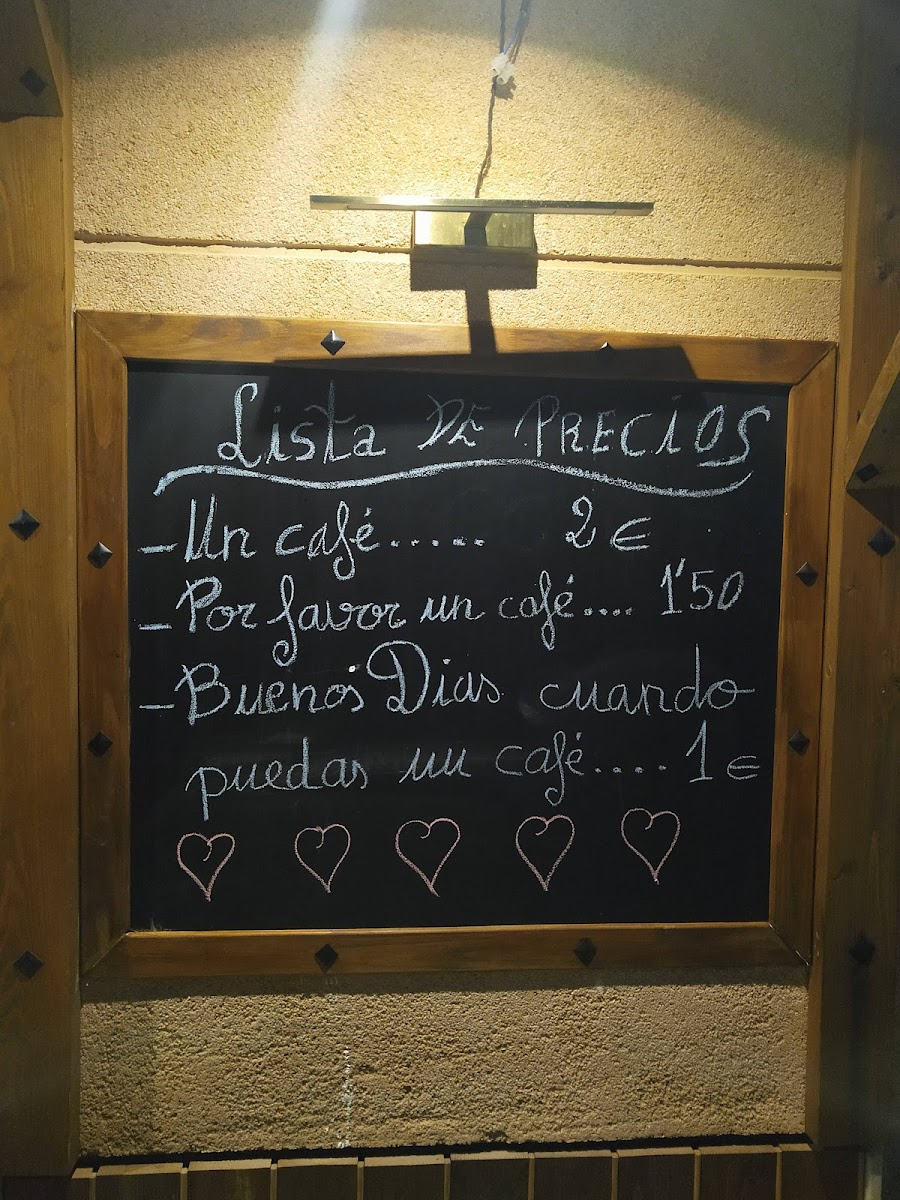 Lista DE PRECIOS
- Un café...... 2 €
- Por favor un café.... 1'50
- Buenos Dias cuando
puedas un café..... 1 €